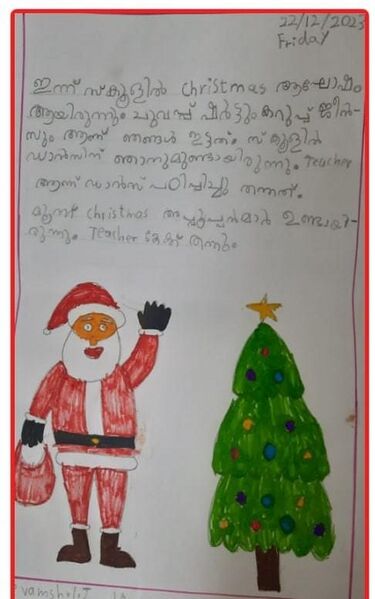 22/12/2023
Friday
ഇന്ന് സ്കൂളിൽ christmas ആഘോഷം
ആയിരുന്നു. ചുവപ്പ് ഷർട്ടും കറുപ്പ് ജീൻ-
സും ആണ് ഞങ്ങൾ ഇട്ടത്. സ്കൂളിൽ
ഡാൻസിന് ഞാനുമുണ്ടായിരുന്നു. Teacher
ആണ് ഡാൻസ് പഠിപ്പിച്ചു തന്നത്.
മൂന്ന് christmas അപ്പൂപ്പൻമാർ ഉണ്ടായി-
രുന്നു. Teacher കേക്ക് തന്നു.